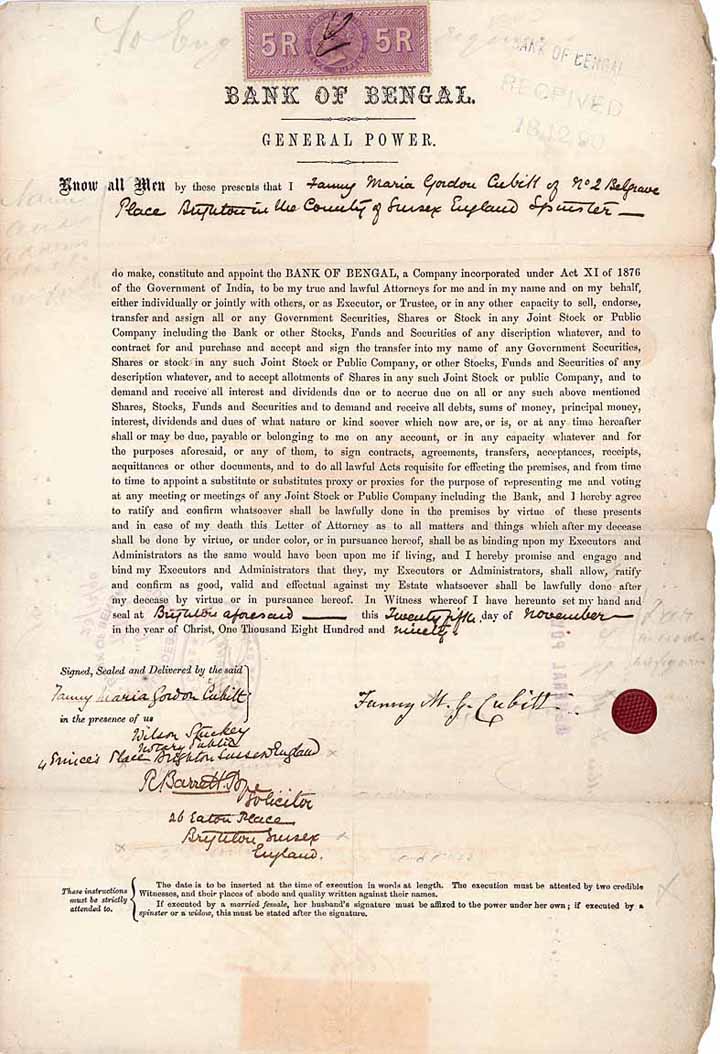 5R 5R
BANK OF BENGAL
RECEIVED
18.12.90
BANK OF BENGAL.
GENERAL POWER.
Know all Men by these presents that I Fanny Maria Gordon Cubitt of No 2 Belgrave
Place Brighton in the County of Sussex England Spinster
do make, constitute and appoint the BANK OF BENGAL, a Company incorporated under Act XI of 1876
of the Government of India, to be my true and lawful Attorneys for me and in my name and on my behalf,
either individually or jointly with others, or as Executor, or Trustee, or in any other capacity to sell, endorse,
transfer and assign all or any Government Securities, Shares or Stock in any Joint Stock or Public
Company including the Bank or other Stocks, Funds and Securities of any discription whatever, and to
contract for and purchase and accept and sign the transfer into my name of any Government Securities,
Shares or stock in any such Joint Stock or Public Company, or other Stocks, Funds and Securities of any
description whatever, and to accept allotments of Shares in any such Joint Stock or public Company, and to
demand and receive all interest and dividends due or to accrue due on all or any such above mentioned
Shares, Stocks, Funds and Securities and to demand and receive all debts, sums of money, principal money,
interest, dividends and dues of what nature or kind soever which now are, or is, or at any time hereafter
shall or may be due, payable or belonging to me on any account, or in any capacity whatever and for
the purposes aforesaid, or any of them, to sign contracts, agreements, transfers, acceptances, receipts,
acquittances or other documents, and to do all lawful Acts requisite for effecting the premises, and from time
to time to appoint a substitute or substitutes proxy or proxies for the purpose of representing me and voting
at any meeting or meetings of any Joint Stock or Public Company including the Bank, and I hereby agree
to ratify and confirm whatsoever shall be lawfully done in the premises by virtue of these presents
and in case of my death this Letter of Attorney as to all matters and things which after my decease
shall be done by virtue, or under color, or in pursuance hereof, shall be as binding upon my Executors and
Administrators as the same would have been upon me if living, and I hereby promise and engage and
bind my Executors and Administrators that they, my Executors or Administrators, shall allow, ratify
and confirm as good, valid and effectual against my Estate whatsoever shall be lawfully done after
my decease by virtue or in pursuance hereof. In Witness whereof I have hereunto set my hand and
seal at Brighton aforesaid this Twenty fifth day of November
in the year of Christ, One Thousand Eight Hundred and ninety
Signed, Sealed and Delivered by the said
Fanny Maria Gordon Cubitt
in the presence of us
Fanny M. G. Cubitt
Wilson Stuckey
Notary Public
4 Prince's Place Brighton Sussex England
R Barrett Pope
Solicitor
26 Eaton Place
Brighton Sussex
England.
These instructions must be strictly attended to.
The date is to be inserted at the time of execution in words at length. The execution must be attested by two credible
Witnesses, and their places of abode and quality written against their names.
If executed by a married female, her husband's signature must be affixed to the power under her own; if executed by a
spinster or a widow, this must be stated after the signature.